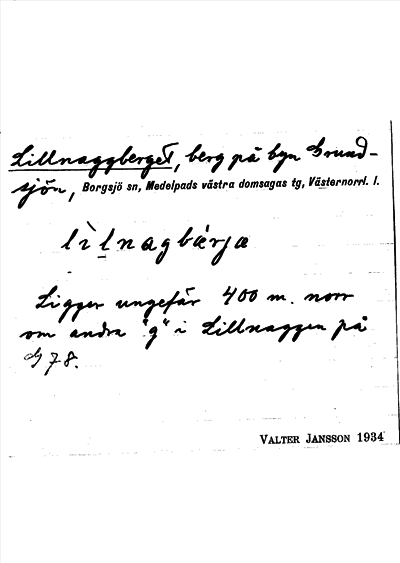 Lillnaggberget, berg på byn Grund-
sjön, Borgsjö sn, Medelpads västra domsagas tg, Västernorrl. l.
lìḻnagbárja
Ligger ungefär 400 m. norr
om andra "g" i Lillnaggen på
G78.
VALTER JANSSON 1934